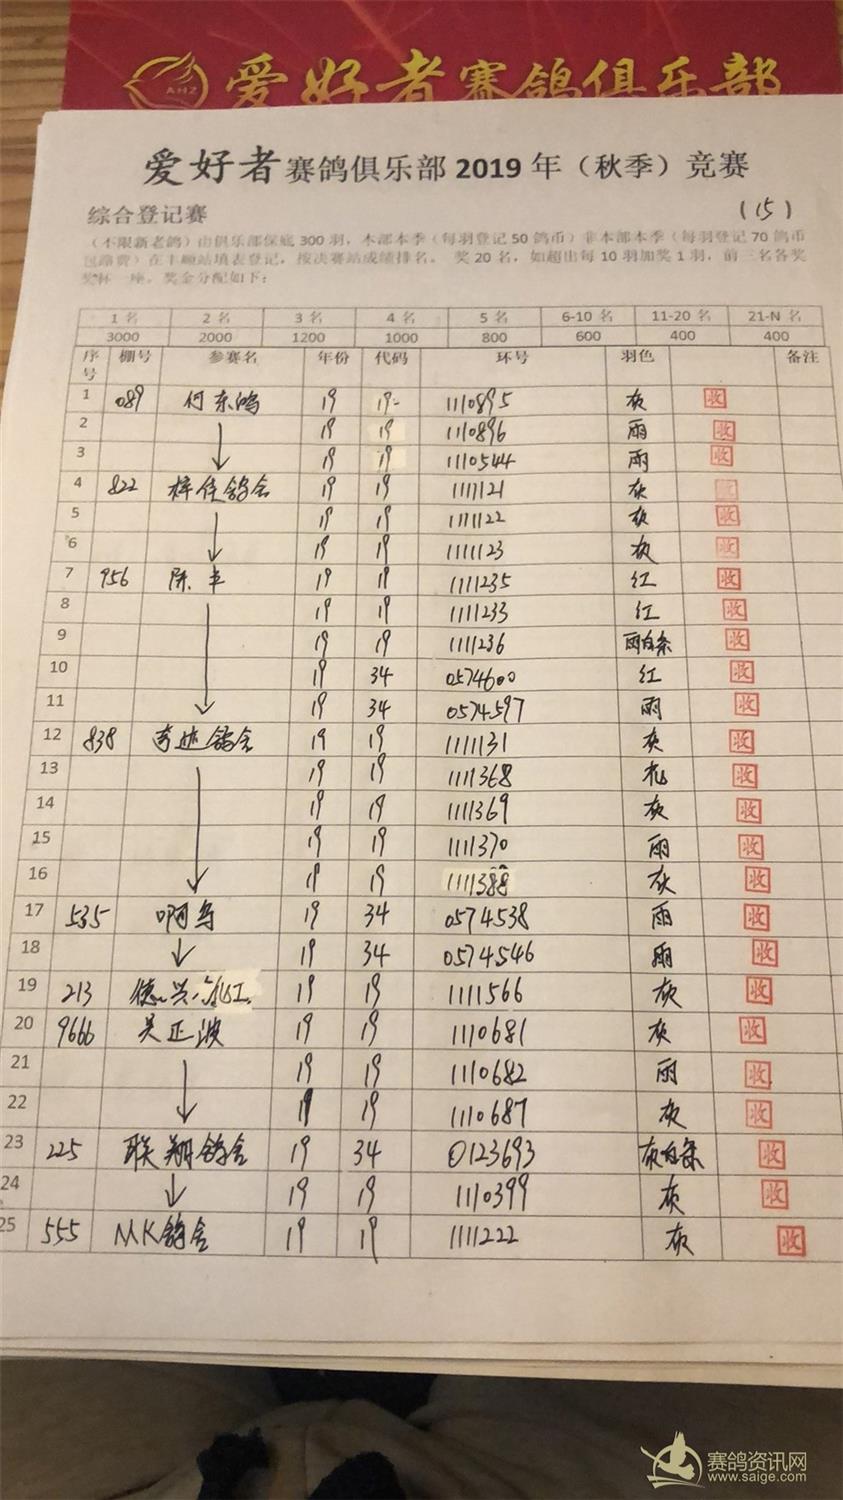 AHZ
爱好者赛鸽俱乐部
爱好者赛鸽俱乐部 2019 年（秋季）竞赛
综合登记赛 (15)
（不限新老鸽）由俱乐部保底 300 羽，本部本季（每羽登记 50 鸽币）非本部本季（每羽登记 70 鸽币
包路费）在丰顺站填表登记，按决赛站成绩排名。 奖 20 名，如超出每 10 羽加奖 1 羽，前三名各奖
奖杯一座。奖金分配如下：
1 名 2 名 3 名 4 名 5 名 6-10 名 11-20 名 21-N 名
3000 2000 1200 1000 800 600 400 400
序号 棚号 参赛名 年份 代码 环号 羽色 备注
1 089 何东鸿 19 19 1110895 灰 收
2 19 19 1110896 雨 收
3 19 19 1110544 雨 收
4 822 梓佳鸽舍 19 19 1111121 灰 收
5 19 19 1111122 灰 收
6 19 19 1111123 灰 收
7 956 陈丰 19 19 1111235 红 收
8 19 19 1111233 红 收
9 19 19 1111236 雨白条 收
10 19 34 0574600 红 收
11 19 34 0574597 雨 收
12 838 鸽舍 19 19 1111131 灰 收
13 19 19 1111368 收
14 19 19 1111369 灰 收
15 19 19 1111370 雨 收
16 19 19 1111388 灰 收
17 535 啊乌 19 34 0574538 雨 收
18 19 34 0574546 雨 收
19 213 德兴 19 19 1111566 灰 收
20 9666 吴正波 19 19 1110681 灰 收
21 19 19 1110682 雨 收
22 19 19 1110687 灰 收
23 225 联翔鸽舍 19 34 0123693 灰白条 收
24 19 19 1110399 灰 收
25 555 MK鸽舍 19 19 1111222 灰 收
赛鸽资讯网
www.saige.com